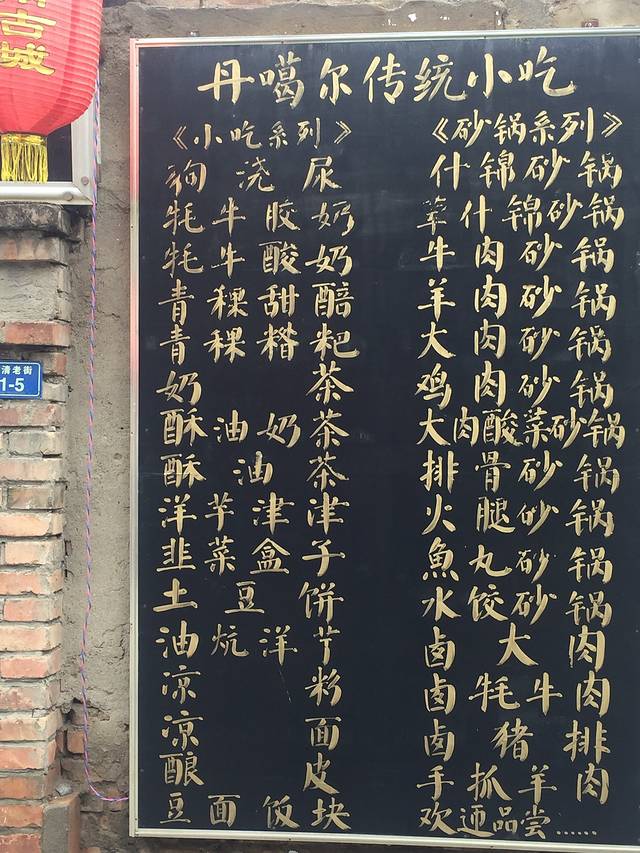 丹噶尔传统小吃
《小吃系列》
狗浇尿
牦牛胶奶
牦牛酸奶
青稞甜醅
青稞糌粑
奶茶
酥油奶茶
酥油茶
洋芋津津
韭菜盒子
土豆饼
油炕洋芋
凉粉
凉面
酿皮
豆面饭块
《砂锅系列》
什锦砂锅
荤什锦砂锅
牛肉砂锅
羊肉砂锅
大肉砂锅
鸡肉砂锅
大肉酸菜砂锅
排骨砂锅
火腿砂锅
魚丸砂锅
水饺砂锅
卤大肉
卤牦牛肉
卤猪排
手抓羊肉
欢迎品尝……
古城
清老街
1-5